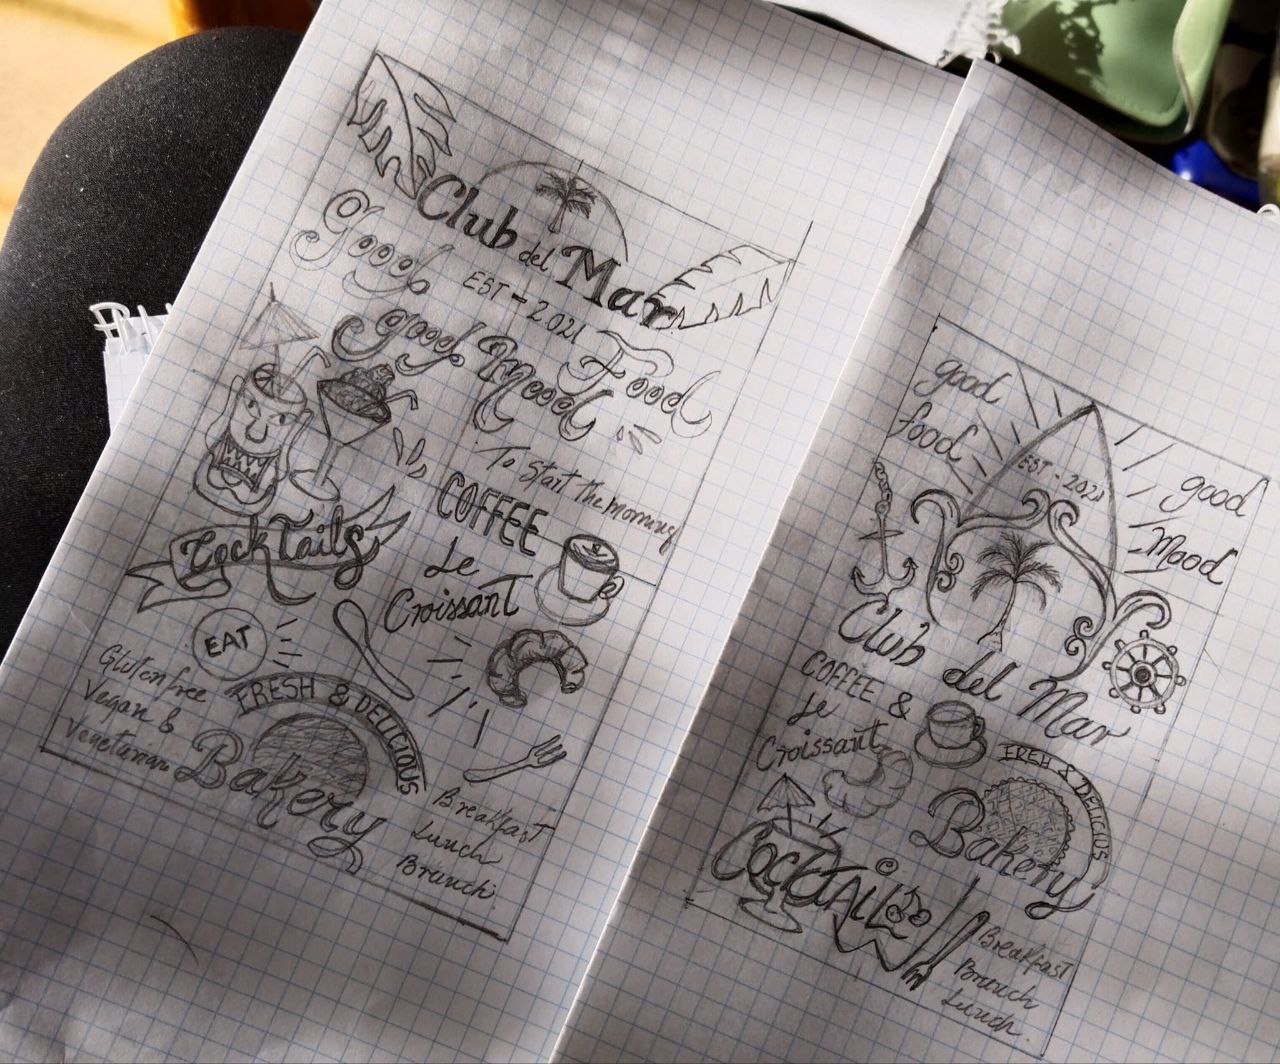 Club del Mar
EST - 2021
Good Food
good Mood
To Start the morning
COFFEE
Le
Croissant
CockTails
EAT
Gluten free
Vegan &
Vegeturian
FRESH & DELICIOUS
Bakery
Breakfast
Lunch
Brunch
good
food
EST - 2021
good
Mood
Club del Mar
COFFEE &
Le
Croissant
FREH & DELICIUS
Bakery
CockTAils
Breakfast
Brunch
Lunch